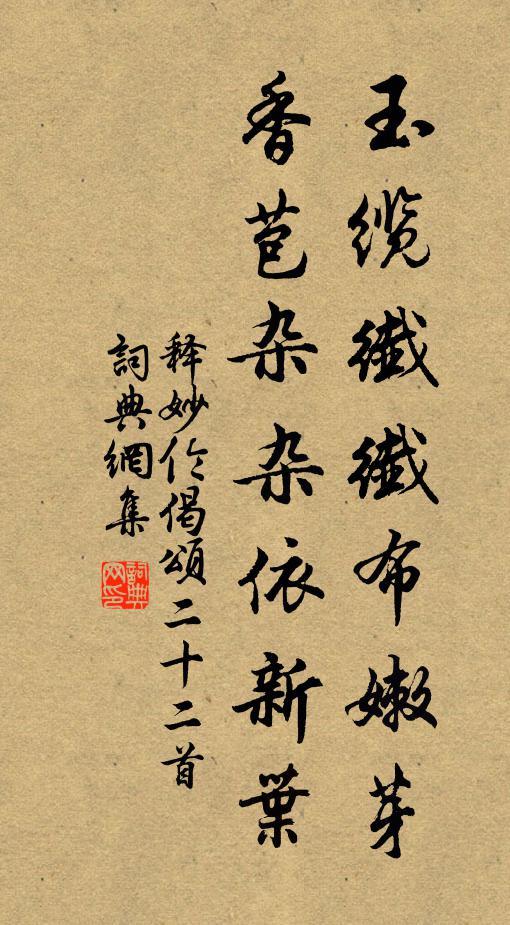 玉缆纖纖布嫩芽
香苞杂杂依新葉
释妙伦偈頌二十二首
詞典網集
詞典网印